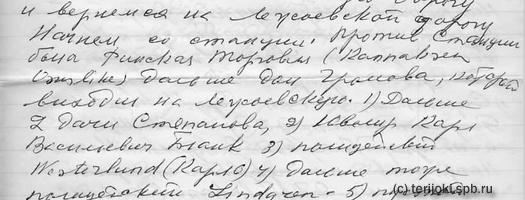 и вернемся на Лужаевскую дорогу
Начнем со станции. Против станции
была Финская Торговля (Каппа
Дальше дом Громова, который
выходил на Лужаевскую. 1) Дальше
2 дачи Степанова, 2) Ювелир Карл
Васильевич Бланк 3) полицейский
Westerlund (Карло) 4) Дальше тоже
полицейский Lindgren - 5)
(c) terijoki.spb.ru